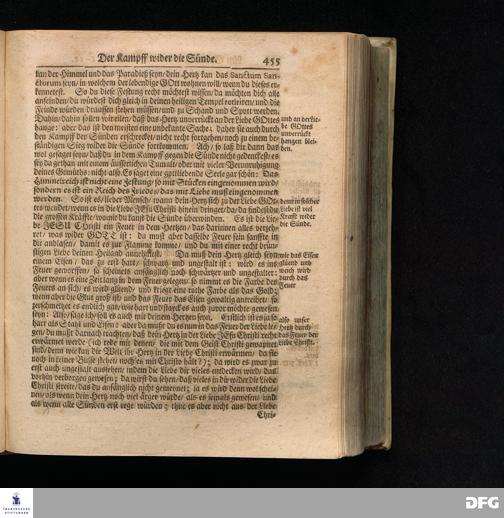 Der Kampff wider die Sünde. 455
kan der Himmel und das Paradieß seyn/ dein Hertz kan das Sanctum San-
ctorum seyn/ in welchem der lebendige GOtt wohnen will/ wenn du dieses er-
kennetest. So du diese Festung recht möchtest wissen/ da möchten dich alle
anfeinden/ du würdest dich gleich in deinen heiligen Tempel retiriren/ und die
Feinde würden draussen stehen müssen/ und zu Schand und Spott werden.
Dahin/ dahin sollen wir eilen/ daß das Hertz unverrückt an der Liebe GOttes
hange: aber das ist den meisten eine unbekante Sache; daher sie auch durch
den Kampff der Sünden erschrecket/ nicht recht fortgehen/ noch zu einem be-
ständigen Sieg wider die Sünde fortkommen. Ach/ so laß dir dann das
wol gesaget seyn/ daß du in dem Kampff gegen die Sünde nicht gedenckest/ es
sey da gethan mit einem äusserlichen Tumult/ oder mit vieler Verunruhigung
deines Gemüths: nicht also. Es saget eine gottliebende Seele gar schön: Das
Himmelreich ist nicht eine Festung/ so mit Stücken eingenommen wird/
sondern es ist ein Reich des Friedes/ das mit Liebe muß eingenommen
werden. So ist es/ lieber Mensch/ wann dein Hertz sich zu der Liebe GOt-
tes wendet/ wenn es in die Liebe JEsu Christi hinein dringet/ da/ da findest du
die grossen Kräffte/ womit du kanst die Sünde überwinden. Es ist die Lie-
be JESU Christi ein Feuer in dem Hertzen/ das darinnen alles verzeh-
ret/ was wider GOTT ist: da must aber dasselbe Feuer fein sanffte in
dir anblasen/ damit es zur Flamme komme/ und du mit einer recht brün-
stigen Liebe deinen Heiland anzusteckest. Da muß dein Hertz gleich seyn
einem Eisen/ das zu erst hart/ schwartz und ungestalt ist: wird es ins
Feuer geworffen/ so scheinets anfänglich noch schwärtzer und ungestalter:
aber wenn es eine Zeitlang in dem Feuer gelegen/ so nimmt es die Farbe des
Feuers an sich/ es wird glüend/ und krieget eine rothe Farbe als das Gold;
wenn aber die Glut groß ist/ und das Feuer das Eisen gewaltig antreibet/ so
zerschmeltzet es endlich gar/ wie hart und störrig es auch zuvor mochte gewesen
seyn: Also/ sage ich/ soll es auch mit deinem Hertzen seyn. Erstlich ist es ja so
hart als Stahl und Eisen: aber da must du es nun in das Feuer der Liebe le-
gen/ du must darnach trachten/ daß dein Hertz in der Liebe JEsu Christi recht
erwärmet werde (ich rede mit denen/ die mit dem Geist Christi gewapnet
sind/ denn wie kan die Welt ihr Hertz in der Liebe Christi erwärmen/ da sie
noch in keiner Busse stehet/ noch es mit Christo hält?); da wird es zwar zu
erst auch ungestalt aussehen/ indem die Liebe dir vieles entdecken wird/ das
vorhin verborgen gewesen; da wirst du sehen/ daß vieles in dir wider die Liebe
Christi streite/ das du anfänglich nicht gewernet; ja es wird denn wol schei-
nen/ als wenn dein Hertz noch viel ärger würde/ als es jemals gewesen/ und
als wenn alle Sünden erst rege würden; thue es aber nicht aus der Liebe
Chri-
und an der Lie-
be GOttes
unverrückt
hangen blei-
ben.
denn in solcher
Liebe ist viel
Krafft wider
die Sünde.
wie das Eisen
glüend und
weich wird
durch das
Feuer
also unser
Hertz durch
das Feuer der
Liebe Christi.
FRANCKESCHE
STIFTUNGEN
DFG